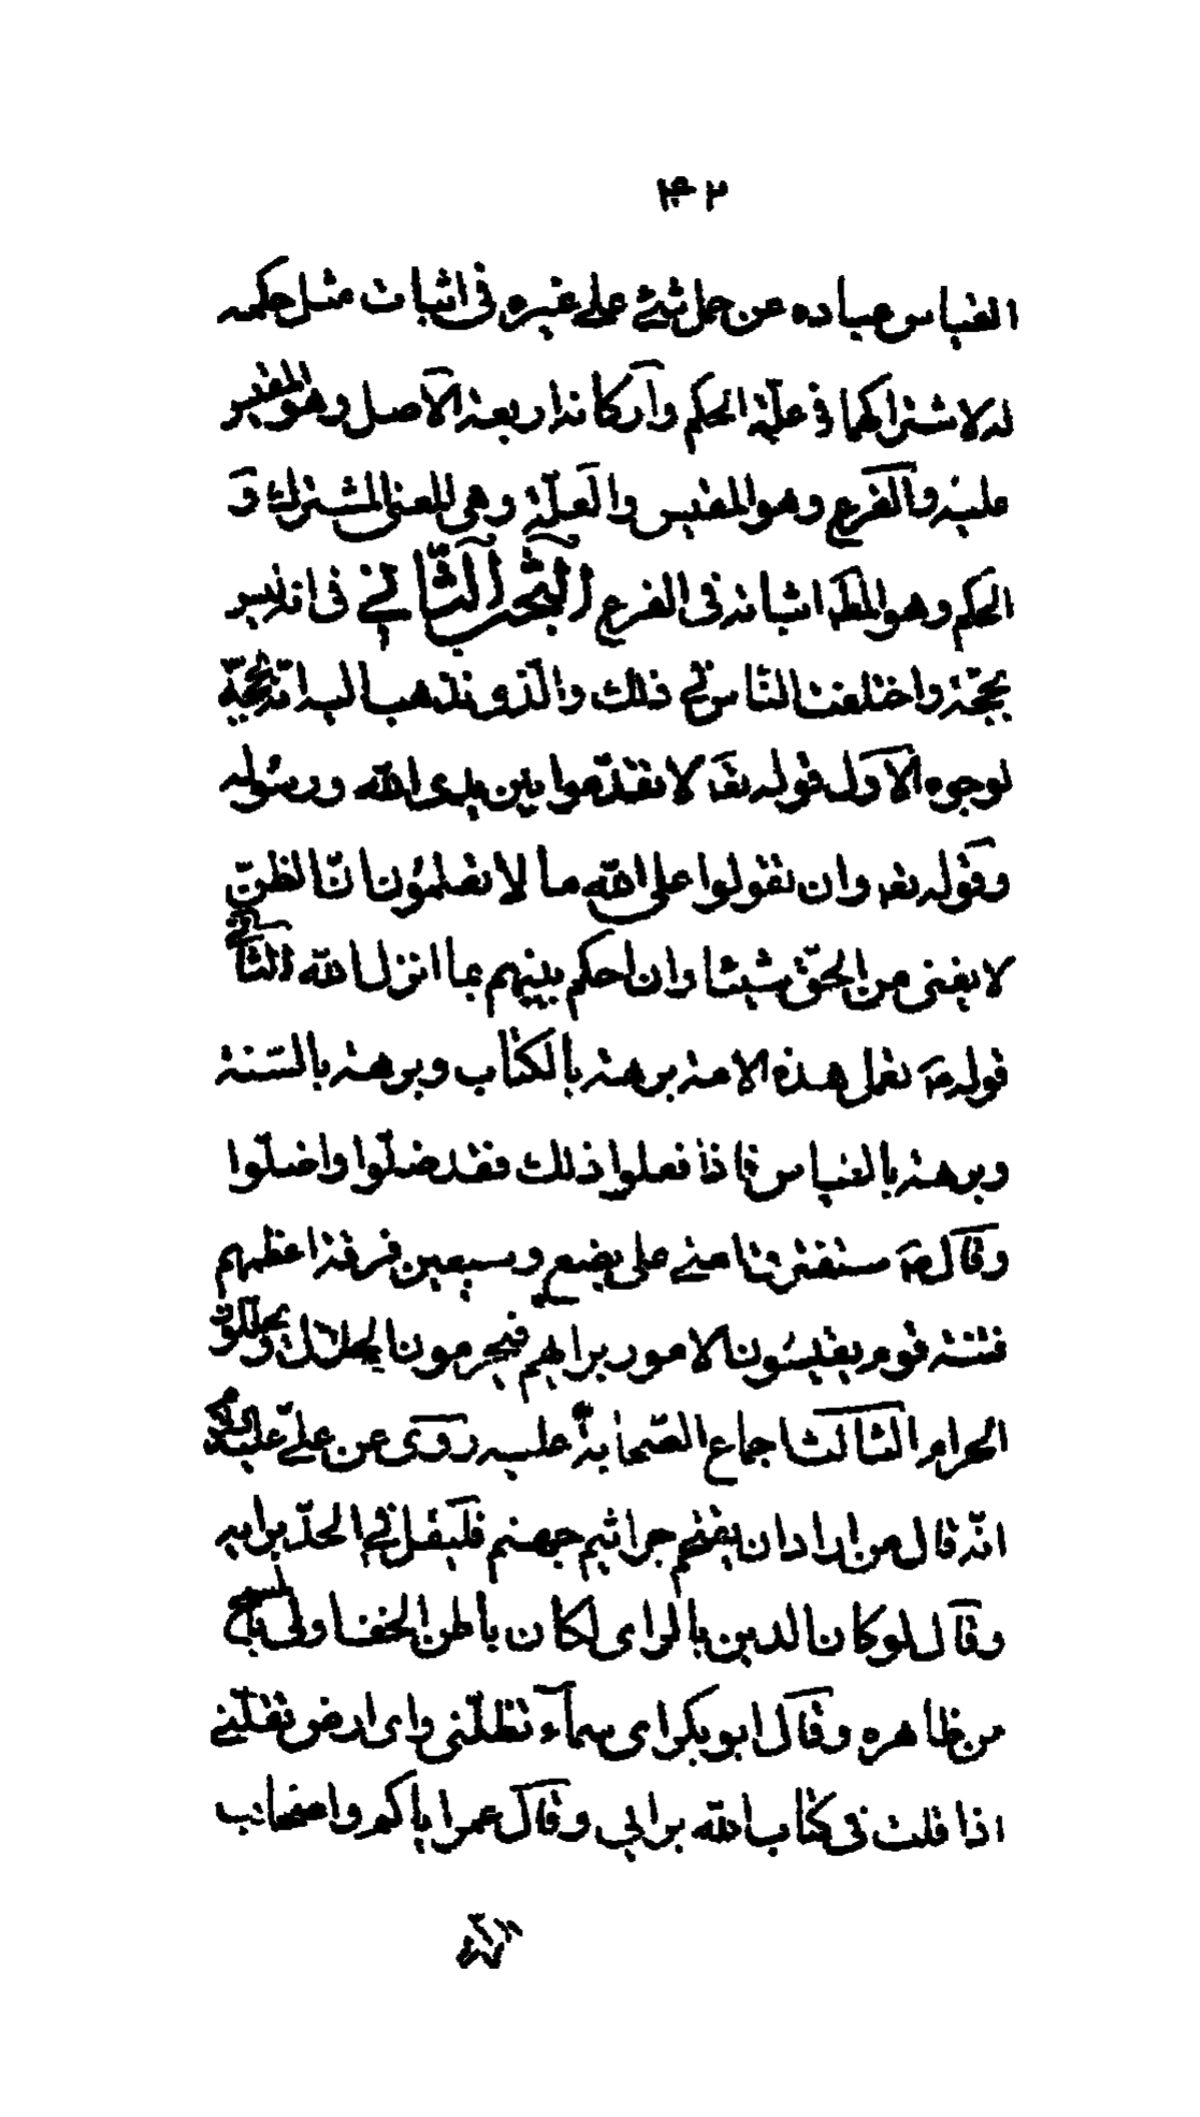 القياس عباره عن حمل شئ على غيره فى اثبات مثل حكمه
له لاشتراكهما فى علّة الحكم وآركانه اربعة الآصل وهو المقيس
عليه وآلفرع وهو المقيس والعلّة وهى المعنى المشترك وَ
الحكم وهو المط اثباته فى الفرع البحث الثّانى فى انه ليس
بحجّة واختلف النّاس فى ذلك والّذى نذهب اليه انّه ليس بحجّة
لوجوه الآوّل قوله تعَا لا تقدّموا بين يدى اللّه ورسُوله
وقوله تعه وان تقولوا على اللّه ما لا تعلمُون انّ الظنّ
لا يغنى من الحقّ شيئا وان احكم بينهم بما انزل اللّه الثّانى
قوله صَ تعمل هذه الامة برهة بالكتاب وبرهة بالسّنة
وبرهة بالقياس فاذا فعلوا ذلك فقد ضلّوا واضلّوا
وقال صَ ستفترق امتى على بضع وسبعين فرقة اعظمهم
فتنة قوم يقيسُون الامور برايهم فيحرمون الحلال ويحللون
الحرام الثالث اجماع الصّحابة عليه روى عن علىّ عليه السلام
انّه قال من اراد ان يقتحم جراثيم جهنم فليقل فى الجدّ برايه
وقال لو كان الدين بالراى لكان باطن الخف اولى بالمسح
من ظاهره وقال ابو بكر اى سمآء تظلّنى واى ارض تقلّنى
اذا قلت فى كتاب اللّه برايى وقال عمر اياكم واصحاب
الرّاى